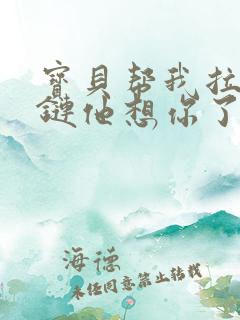 寶貝幫我拉
鏈他想你了
海德
未经同意禁止转载